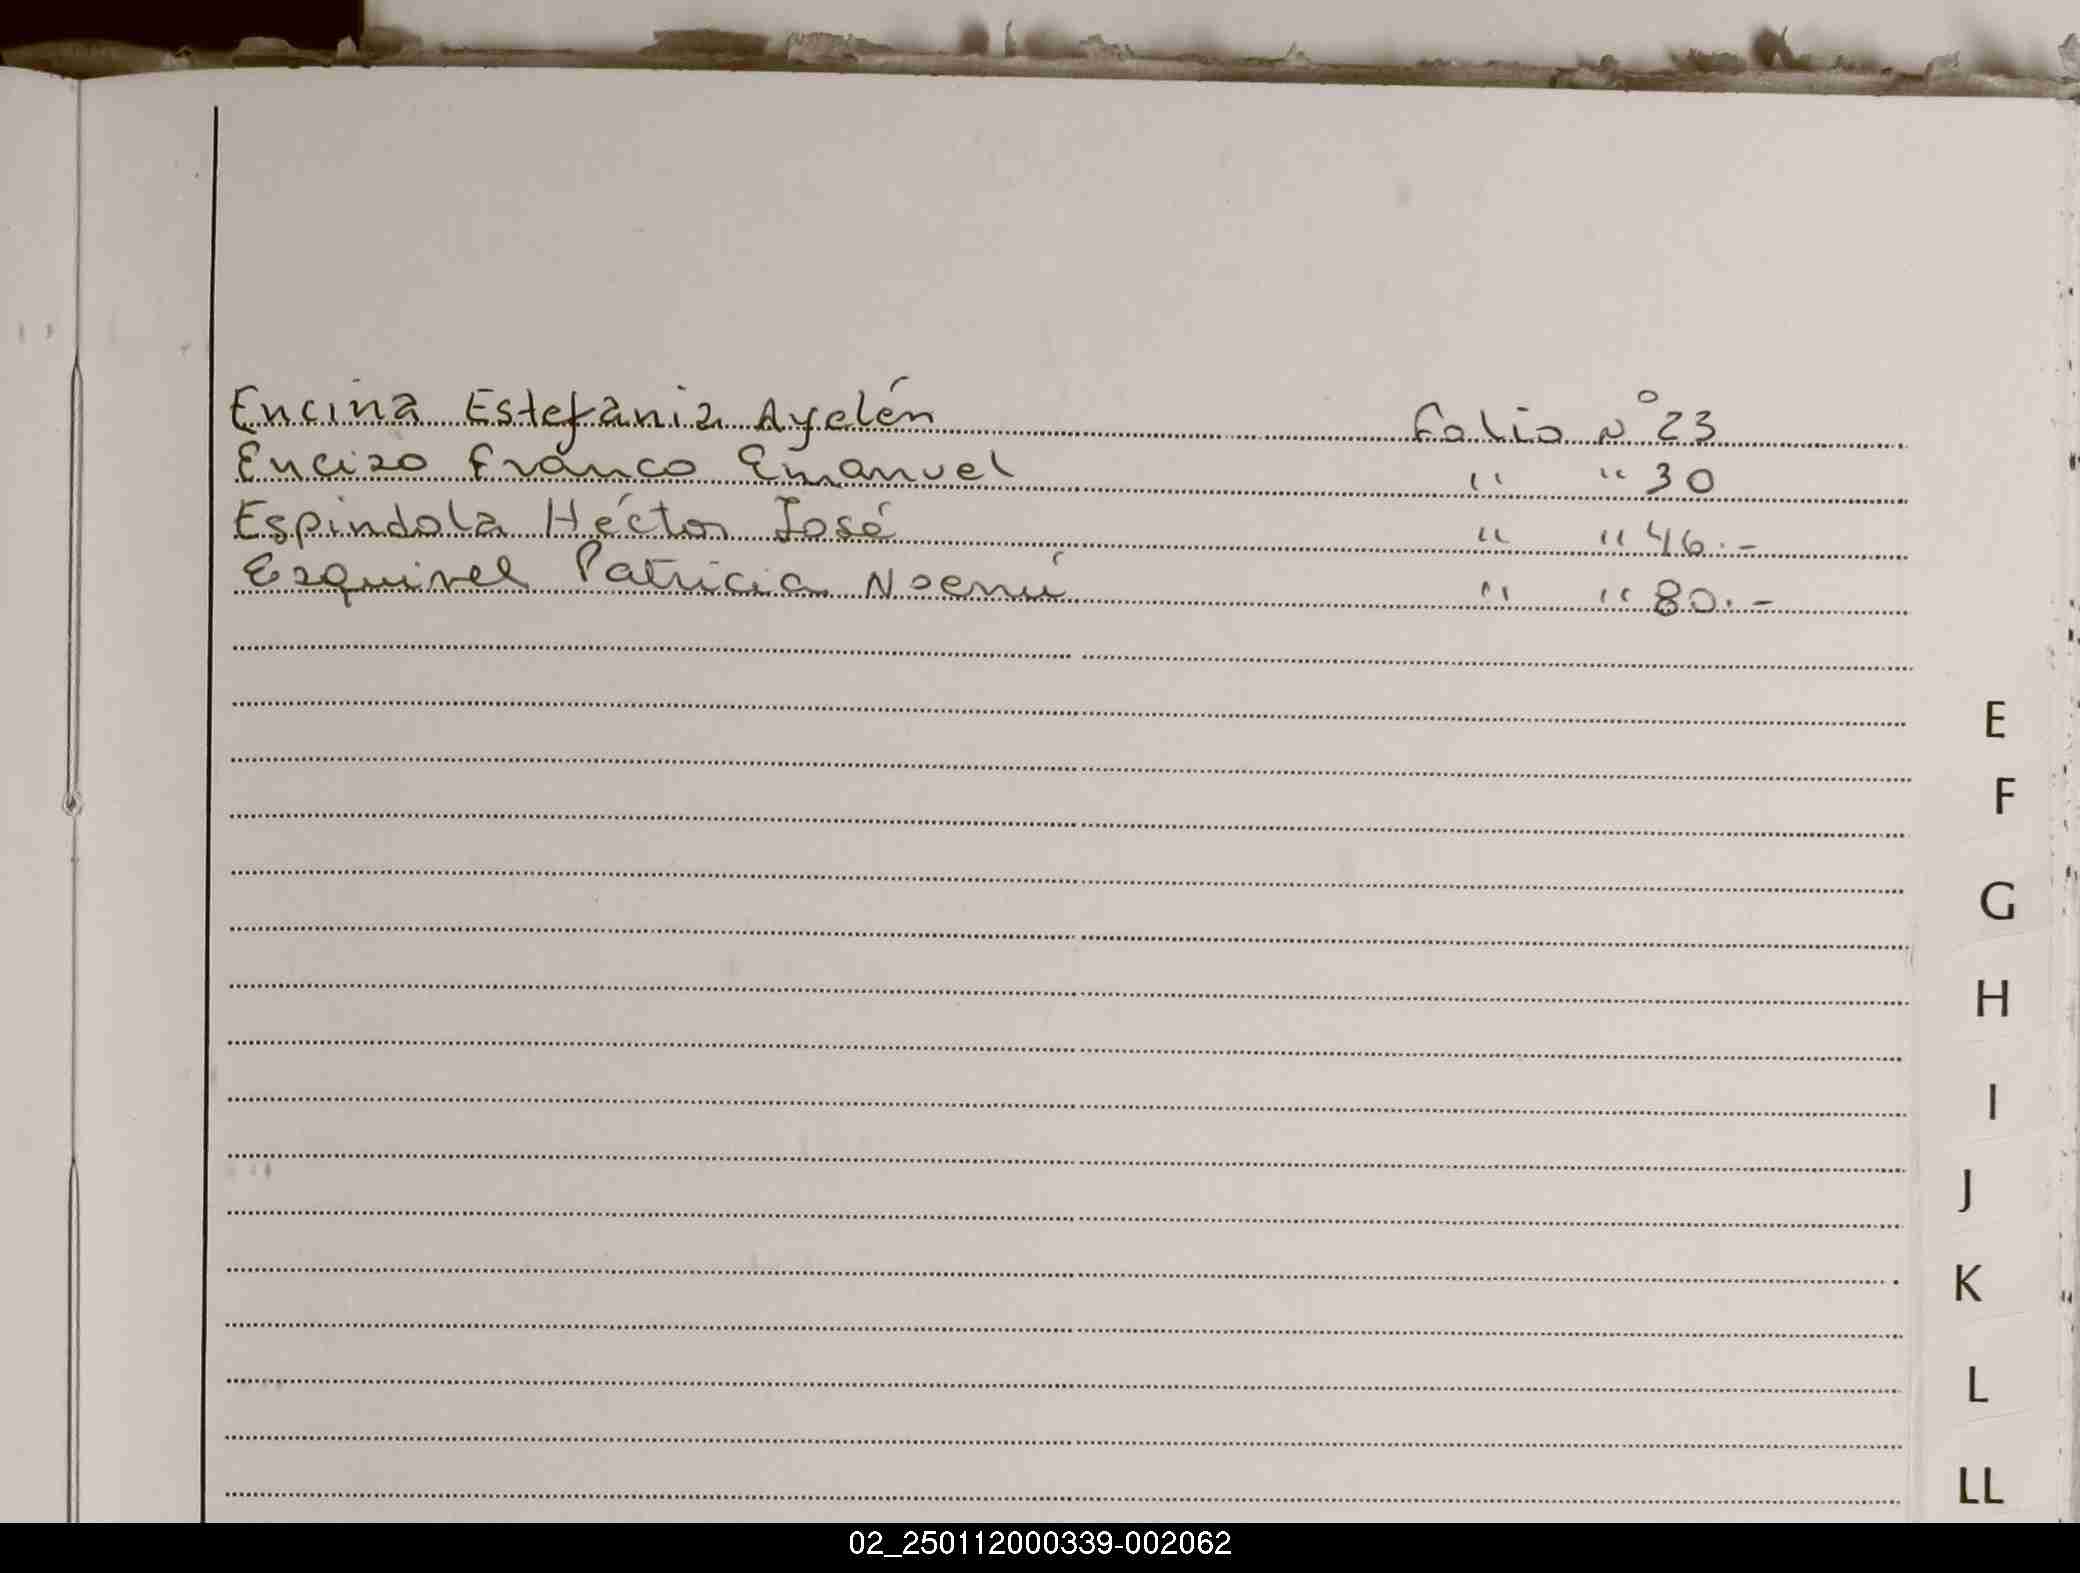 Encina Estefania Ayelén Folio N° 23
Enciso Franco Emanuel " " 30
Espindola Héctor José " " 46.-
Esquivel Patricia Noemí " " 80.-
E
F
G
H
I
J
K
L
LL
02_250112000339-002062